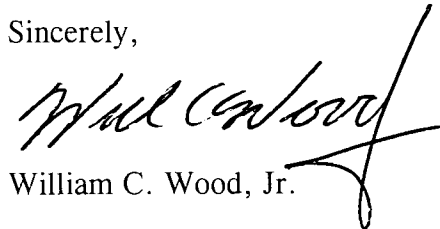 Sincerely,
Will C Wood
William C. Wood, Jr.